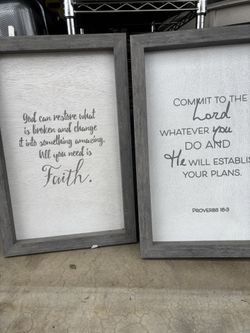 God can restore what
is broken and change
it into something amazing.
All you need is
Faith.
COMMIT TO THE
Lord
WHATEVER you
DO AND
He WILL ESTABLIS
YOUR PLANS.
PROVERBS 16:3